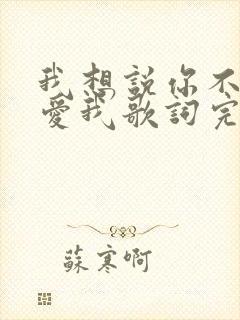 我想説你不
愛我歌詞完
蘇寒啊